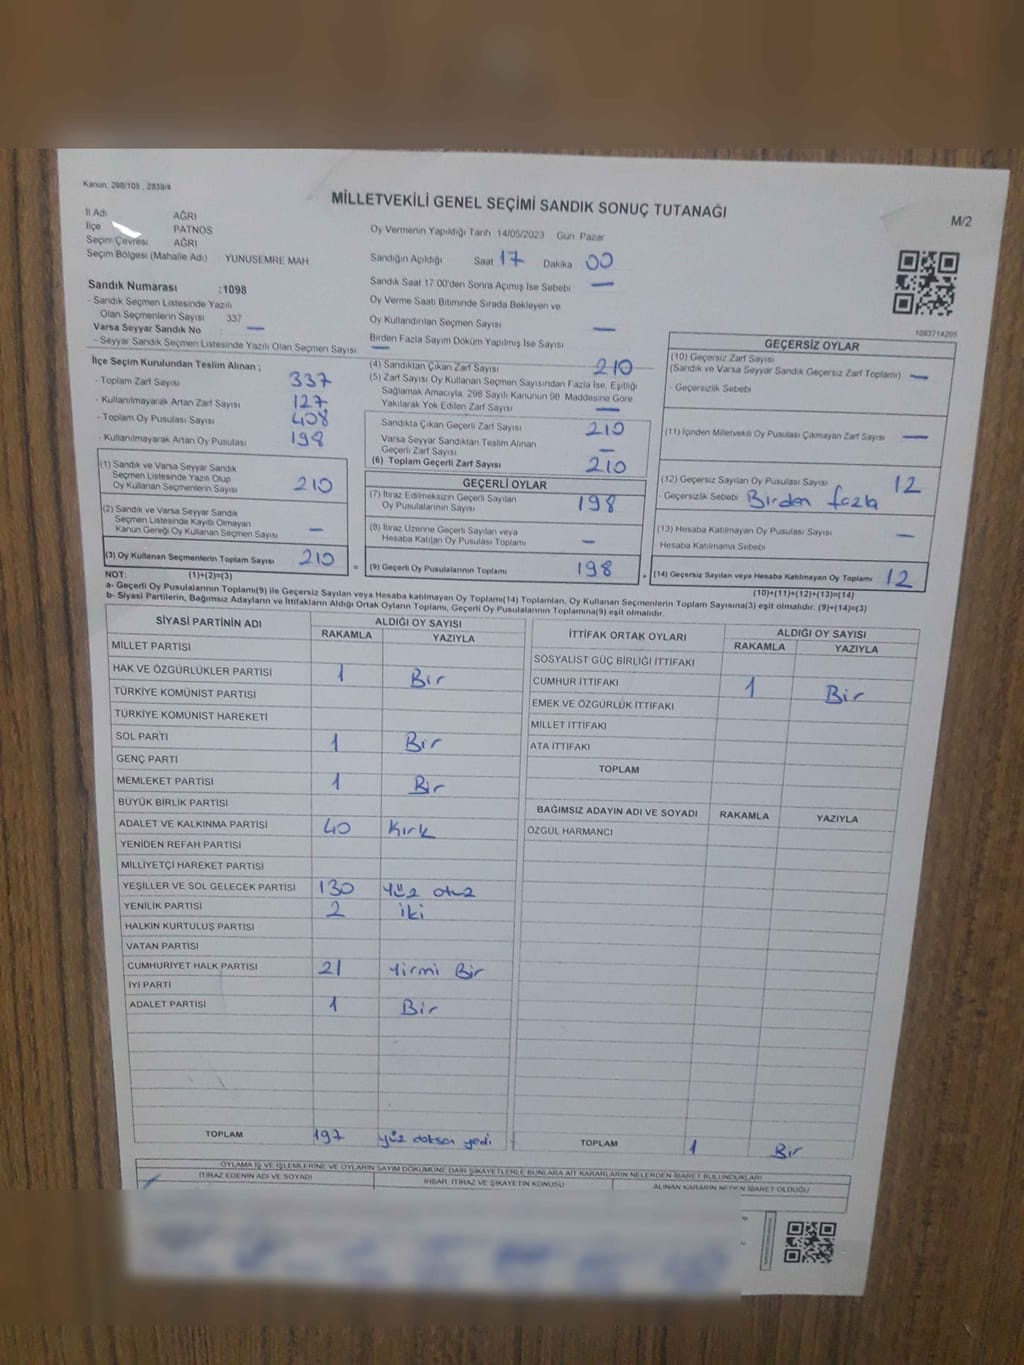 Kanun, 298/105 , 2839/4
MİLLETVEKİLİ GENEL SEÇİMİ SANDIK SONUÇ TUTANAĞI
M/2
İl Adı AĞRI
İlçe PATNOS
Seçim Çevresi AĞRI
Seçim Bölgesi (Mahalle Adı) YUNUSEMRE MAH
Oy Vermenin Yapıldığı Tarih 14/05/2023 Gün Pazar
Sandığın Açıldığı Saat 17 Dakika 00
Sandık Saat 17:00'den Sonra Açılmış İse Sebebi —
Oy Verme Saati Bitiminde Sırada Bekleyen ve
Oy Kullandırılan Seçmen Sayısı —
Birden Fazla Sayım Döküm Yapılmış İse Sayısı —
Sandık Numarası :1098
- Sandık Seçmen Listesinde Yazılı
Olan Seçmenlerin Sayısı 337
Varsa Seyyar Sandık No : —
- Seyyar Sandık Seçmen Listesinde Yazılı Olan Seçmen Sayısı
1083714205
İlçe Seçim Kurulundan Teslim Alınan ;
- Toplam Zarf Sayısı 337
- Kullanılmayarak Artan Zarf Sayısı 127
- Toplam Oy Pusulası Sayısı 408
- Kullanılmayarak Artan Oy Pusulası 198
(1) Sandık ve Varsa Seyyar Sandık
Seçmen Listesinde Yazılı Olup
Oy Kullanan Seçmenlerin Sayısı 210
(2) Sandık ve Varsa Seyyar Sandık
Seçmen Listesinde Kayıtlı Olmayan
Kanun Gereği Oy Kullanan Seçmen Sayısı —
(3) Oy Kullanan Seçmenlerin Toplam Sayısı 210
(4) Sandıktan Çıkan Zarf Sayısı 210
(5) Zarf Sayısı Oy Kullanan Seçmen Sayısından Fazla İse, Eşitliği
Sağlamak Amacıyla, 298 Sayılı Kanunun 98. Maddesine Göre
Yakılarak Yok Edilen Zarf Sayısı —
Sandıkta Çıkan Geçerli Zarf Sayısı 210
Varsa Seyyar Sandıktan Teslim Alınan
Geçerli Zarf Sayısı —
(6) Toplam Geçerli Zarf Sayısı 210
GEÇERLİ OYLAR
(7) İtiraz Edilmeksizin Geçerli Sayılan
Oy Pusulalarının Sayısı 198
(8) İtiraz Üzerine Geçerli Sayılan veya
Hesaba Katılan Oy Pusulası Toplamı —
= (9) Geçerli Oy Pusulalarının Toplamı 198
GEÇERSİZ OYLAR
(10) Geçersiz Zarf Sayısı
(Sandık ve Varsa Seyyar Sandık Geçersiz Zarf Toplamı) —
- Geçersizlik Sebebi
(11) İçinden Milletvekili Oy Pusulası Çıkmayan Zarf Sayısı —
(12) Geçersiz Sayılan Oy Pusulası Sayısı 12
- Geçersizlik Sebebi Birden fazla
(13) Hesaba Katılmayan Oy Pusulası Sayısı —
Hesaba Katılmama Sebebi
+ (14) Geçersiz Sayılan veya Hesaba Katılmayan Oy Toplamı 12
NOT: (1)+(2)=(3)
(10)+(11)+(12)+(13)=(14)
a- Geçerli Oy Pusulalarının Toplamı(9) ile Geçersiz Sayılan veya Hesaba katılmayan Oy Toplamı(14) Toplamları, Oy Kullanan Seçmenlerin Toplam Sayısına(3) eşit olmalıdır. (9)+(14)=(3)
b- Siyasi Partilerin, Bağımsız Adayların ve İttifakların Aldığı Ortak Oyların Toplamı, Geçerli Oy Pusulalarının Toplamına(9) eşit olmalıdır.
SİYASİ PARTİNİN ADI ALDIĞI OY SAYISI
RAKAMLA YAZIYLA
MİLLET PARTİSİ
HAK VE ÖZGÜRLÜKLER PARTİSİ 1 Bir
TÜRKİYE KOMÜNİST PARTİSİ
TÜRKİYE KOMÜNİST HAREKETİ
SOL PARTİ 1 Bir
GENÇ PARTİ
MEMLEKET PARTİSİ 1 Bir
BÜYÜK BİRLİK PARTİSİ
ADALET VE KALKINMA PARTİSİ 40 Kırk
YENİDEN REFAH PARTİSİ
MİLLİYETÇİ HAREKET PARTİSİ
YEŞİLLER VE SOL GELECEK PARTİSİ 130 Yüz otuz
YENİLİK PARTİSİ 2 iki
HALKIN KURTULUŞ PARTİSİ
VATAN PARTİSİ
CUMHURİYET HALK PARTİSİ 21 Yirmi Bir
İYİ PARTİ
ADALET PARTİSİ 1 Bir
TOPLAM 197 yüz doksan yedi
İTTİFAK ORTAK OYLARI ALDIĞI OY SAYISI
RAKAMLA YAZIYLA
SOSYALİST GÜÇ BİRLİĞİ İTTİFAKI
CUMHUR İTTİFAKI 1 Bir
EMEK VE ÖZGÜRLÜK İTTİFAKI
MİLLET İTTİFAKI
ATA İTTİFAKI
TOPLAM
BAĞIMSIZ ADAYIN ADI VE SOYADI RAKAMLA YAZIYLA
ÖZGÜL HARMANCI
TOPLAM 1 Bir
OYLAMA İŞ VE İŞLEMLERİNE VE OYLARIN SAYIM DÖKÜMÜNE DAİR ŞİKAYETLERLE BUNLARA AİT KARARLARIN NELERDEN İBARET BULUNDUKLARI
İTİRAZ EDENİN ADI VE SOYADI İHBAR, İTİRAZ VE ŞİKAYETİN KONUSU ALINAN KARARIN NEDEN İBARET OLDUĞU